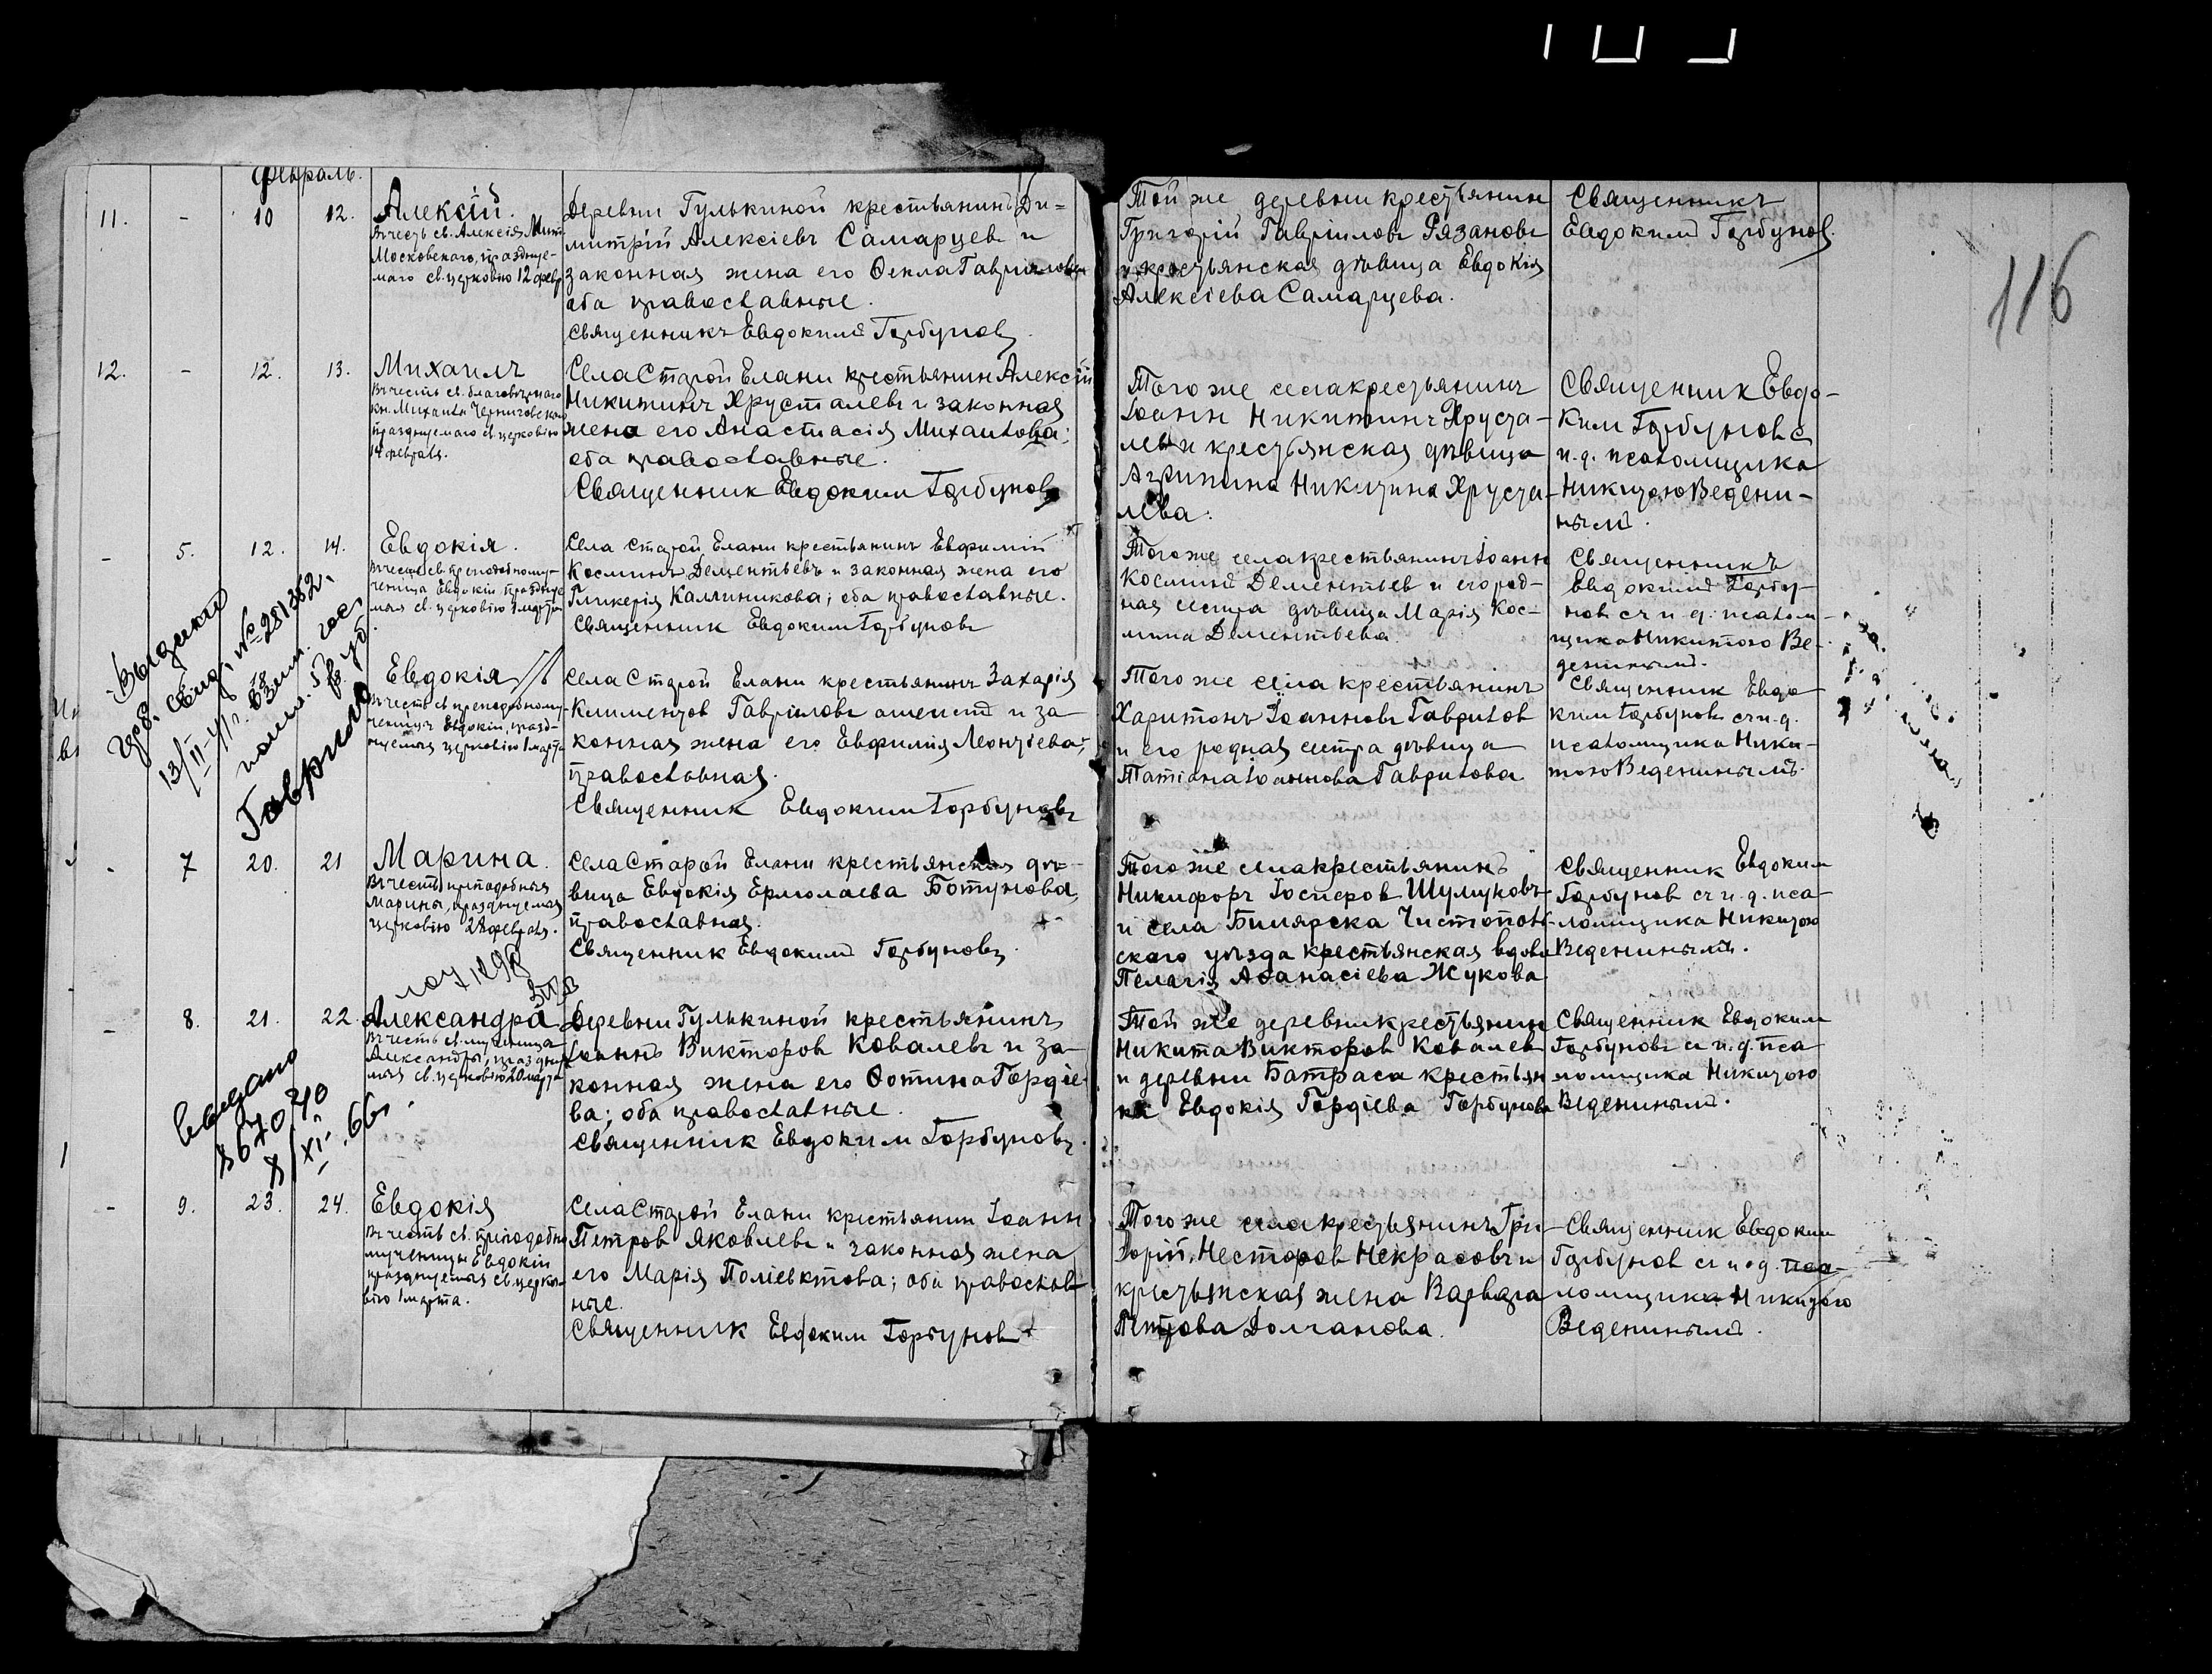 Февраль.
11. - 10 12. Алексій.
Въ честь св. Алексія Мит.
Московскаго, праздуе-
маго св. церковію 12 февр
Деревни Гулькиной крестьянинъ Ди-
митрій Алексіевъ Самарцевъ и
законная жена его Ѳекла Гавріилова
оба православные.
Священникъ Евдокимъ Горбуновъ
Той же деревни крестьянин
Григорій Гавріиловъ Рязановъ
и крестьянская дѣвица Евдокія
Алексіева Самарцева.
Священникъ
Евдокимъ Горбунов.
116
12. - 12. 13. Михаилъ
Въ честь св. благовѣрнаго
кн. Михаила Черниговскаго
празднуемаго св. церковію
14 февраля.
Села Старой Елани крестьянин Алексій
Никитинъ Хрусталевъ и законная
жена его Анастасія Михаилова;
оба православные.
Священник Евдоким Горбунов
Того же села крестьянинъ
Іоаннъ Никитинъ Хруста-
левъ и крестьянская дѣвица
Агрипина Никитина Хруста-
лева.
Священник Евдо-
ким Горбунов с
и. д. псаломщика
Никитою Ведени-
нымъ.
- 5. 12. 14. Евдокія.
Въ честь св. преподобному-
ченицы Евдокіи праздные
мыя св. церковію 1 марта
Села Старой Елани крестьянинъ Евфимій
Косминъ Дементьевъ и законная жена его
Гликерія Каллиникова; оба православные.
Священник Евдоким Горбуновъ
Того же села крестьянинъ Іоанн
Косминъ Дементьев и его род-
ная сестра дѣвица Марія Кос-
мина Дементьева
Священникъ
Евдокимъ Горбу-
нов съ и. д. псалом-
щика Никитою Ве-
дениным.
Выдано
№ 281362,
Гаврилов
Евдокія
Въ честь св. преподобному-
ченицы Евдокіи, празд-
нуемыя церковію 1 марта
Села Старой Елани крестьянинъ Захарія
Климентов Гавриловъ и за-
конная жена его Евфимія Леонтіева;
православная.
Священник Евдоким Горбуновъ
Того же села крестьянинъ
Харитонъ Іоанновъ Гаврилов
и его родная сестра дѣвица
Татіана Іоаннова Гаврилова
Священник Евдо
ким Горбуновъ съ и. д.
псаломщика Ники-
тою Веденинымъ.
- 7 20. 21 Марина.
Въ честь преподобныя
Марины, празднуемыя
церковію 28 февраля.
Села Старой Елани крестьянская дѣ-
вица Евдокія Ермолаева Ботунова,
православная.
Священник Евдокимъ Горбуновъ.
Того же села крестьянинъ
Никифоръ Іосифов Шулуковъ
и села Билярска Чистополь-
скаго уѣзда крестьянская вдова
Пелагія Аѳанасіева Жукова
Священник Евдоким
Горбунов съ и. д. пса-
ломщика Никитою
Веденинымъ.
- 8. 21. 22. Александра
Въ честь св. мученицы
Александры, праздну
мыя св. церковію 20 марта
Деревни Гулькиной крестьянинъ
Іоаннъ Викторов Ковалевъ и за-
конная жена его Фотина Гордіе-
ва; оба православные.
Священник Евдоким Горбуновъ.
Той же деревни крестьянин
Никита Викторов Ковалев
и деревни Батраса крестьян
ка Евдокія Гордіева Горбунова
Священник Евдоким
Горбуновъ съ и. д. пса-
ломщика Никитою
Веденинымъ.
введано
8/XI-66г.
- 9. 23. 24. Евдокія
Въ честь св. преподобно
мученицы Евдокіи
празднуемыя св. церко-
вію 1 марта.
Села Старой Елани крестьянин Іоанн
Петров Яковлевъ и законная жена
его Марія Поліевктова; оба православ
ные.
Священник Евдоким Горбунов
Того же села крестьянинъ Гри-
горій Несторов Некрасовъ и
крестьянская жена Варвара
Петрова Долганова.
Священник Евдоким
Горбунов съ и. д. пса-
ломщика Никитою
Веденинымъ.